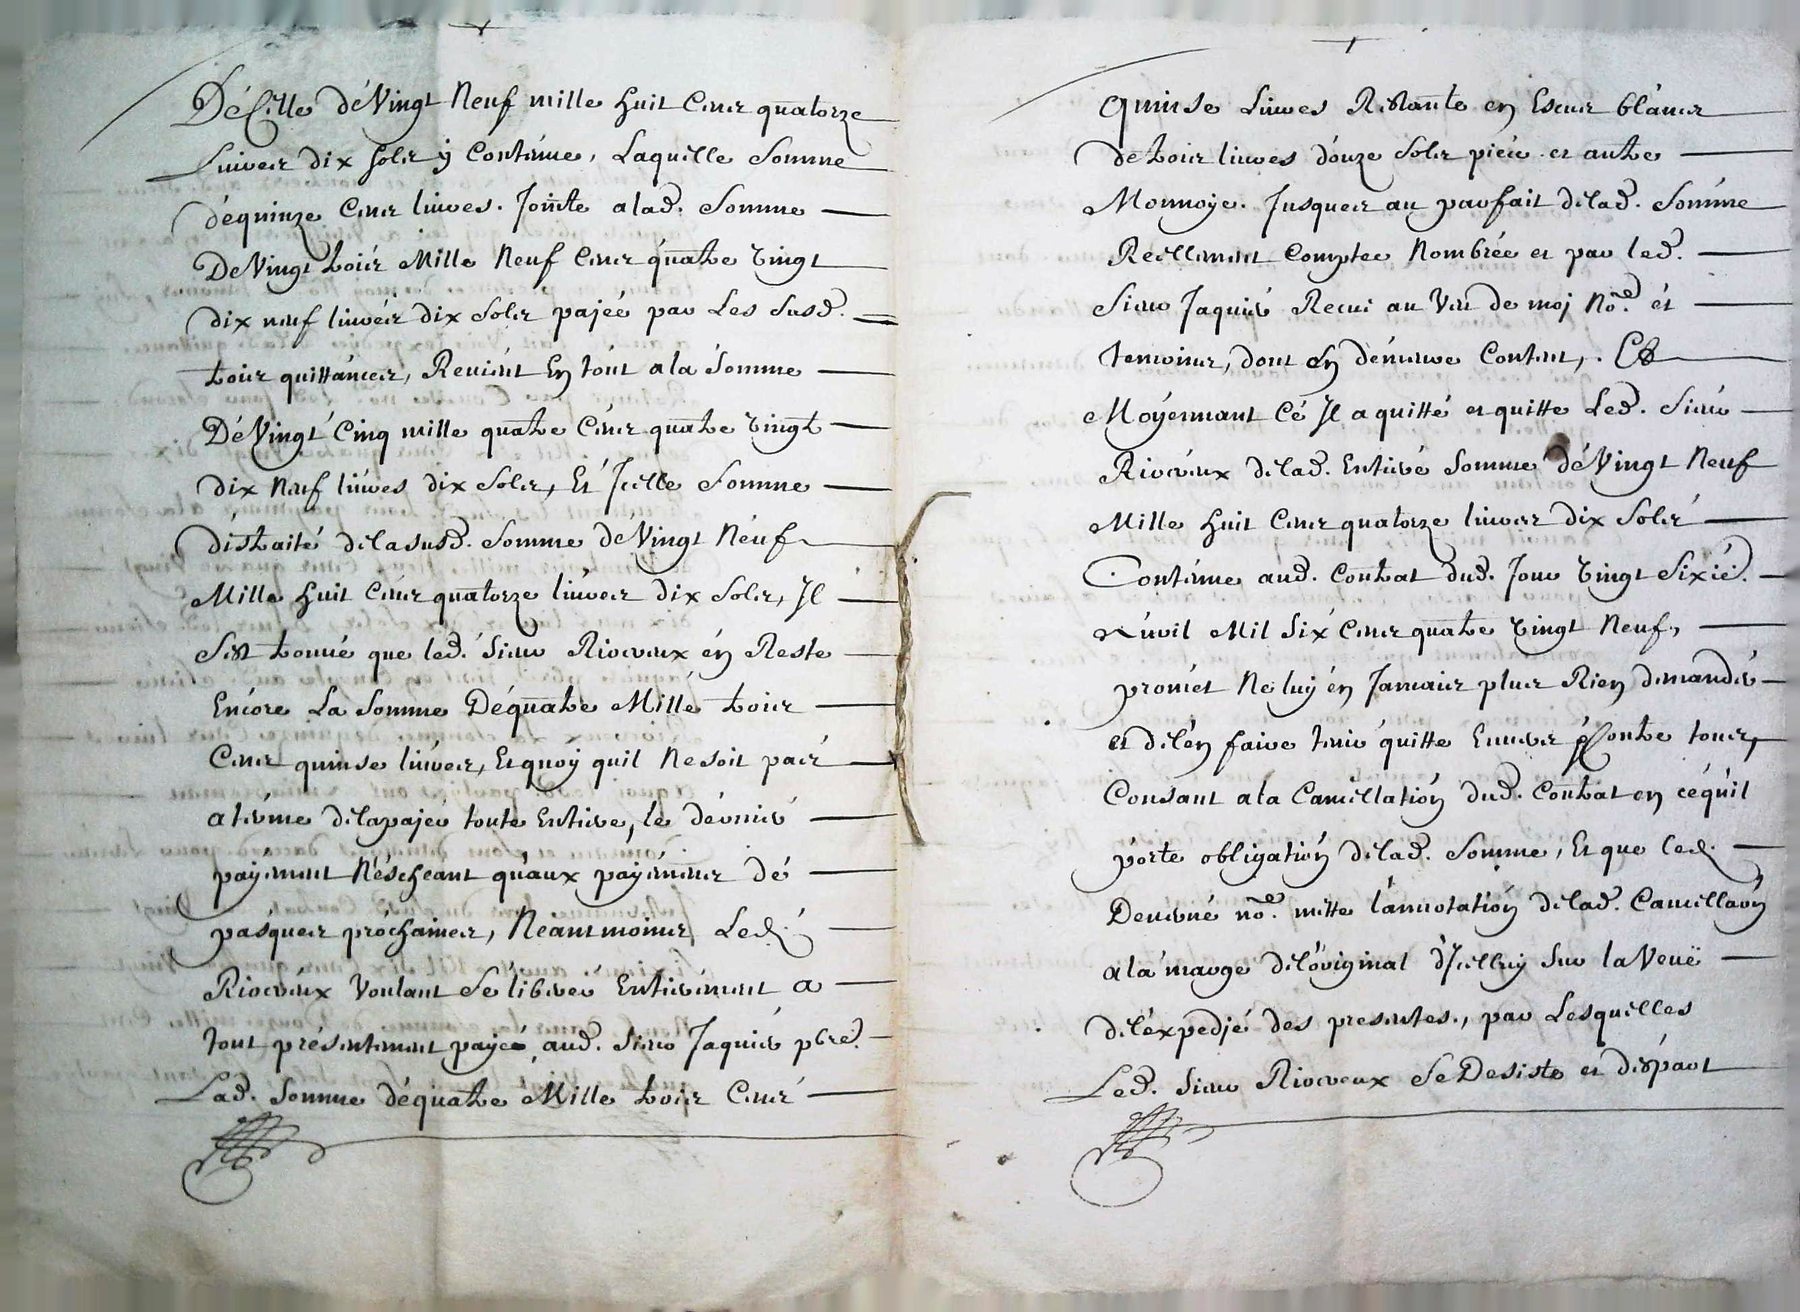 De Celle de Vingt Neuf mille huit Cens quatorze
Livres dix sols y Contenue, Laquelle Somme
de quinze Cens livres. Jointe a lad. Somme
De Vingt trois Mille Neuf Cens quatre vingt
dix neuf livres dix Sols pajée par Les susd.
trois quittances, Revient En tout a la Somme
De Vingt Cinq mille quatre Cens quatre vingt
dix Neuf livres dix Sols, Et Icelle Somme
distraite de la susd. Somme de Vingt Neuf
Mille huit Cens quatorze livres dix Sols, Il
Sest trouvé que led. Sieur en Reste
Encore La Somme De quatre Mille trois
Cens quinse livres, Et quoy quil Ne soit pas
a terme de la pajer toute Entiere, le dernier
payement N'escheant qu'aux payemens de
pasques prochaines, Neantmoins Led.
Voulant Se liberer Entierement a
tout presentement payé aud. Sieur Jaquier pbre.
Lad. Somme de quatre Mille trois Cens
quinse Livres Restante en Escus blancs
de trois livres douze Sols piece et autre
Monnoye. Jusques au parfait de lad. Somme
Reellement Comptee Nombrée et par led.
Sieur Jaquier Receu au Veu de moj No.re et
temoins, dont En demeure Content,. Et
Moyennant Ce Il a quitté et quitte Led. Sieur
de lad. Entiere Somme de Vingt Neuf
Mille huit Cens quatorze livres dix Sols
Contenue aud. Contrat dud. Jour vingt Sixie.
Avril Mil Six Cens quatre vingt Neuf,
promet Ne luy en Jamais plus Rien demander
et de l'en faire tenir quitte Envers & Contre tous,
Consant a la Cancellation dud. Contrat en ce qu'il
porte obligation de lad. Somme, Et que led.
no.re mette l'annotation de lad. Cancellaon
a la marge de l'original d'Icelluy Sur la Veuë
de l'expedjé des presentes, par Lesquelles
Led. Sieur Se Desiste et despart